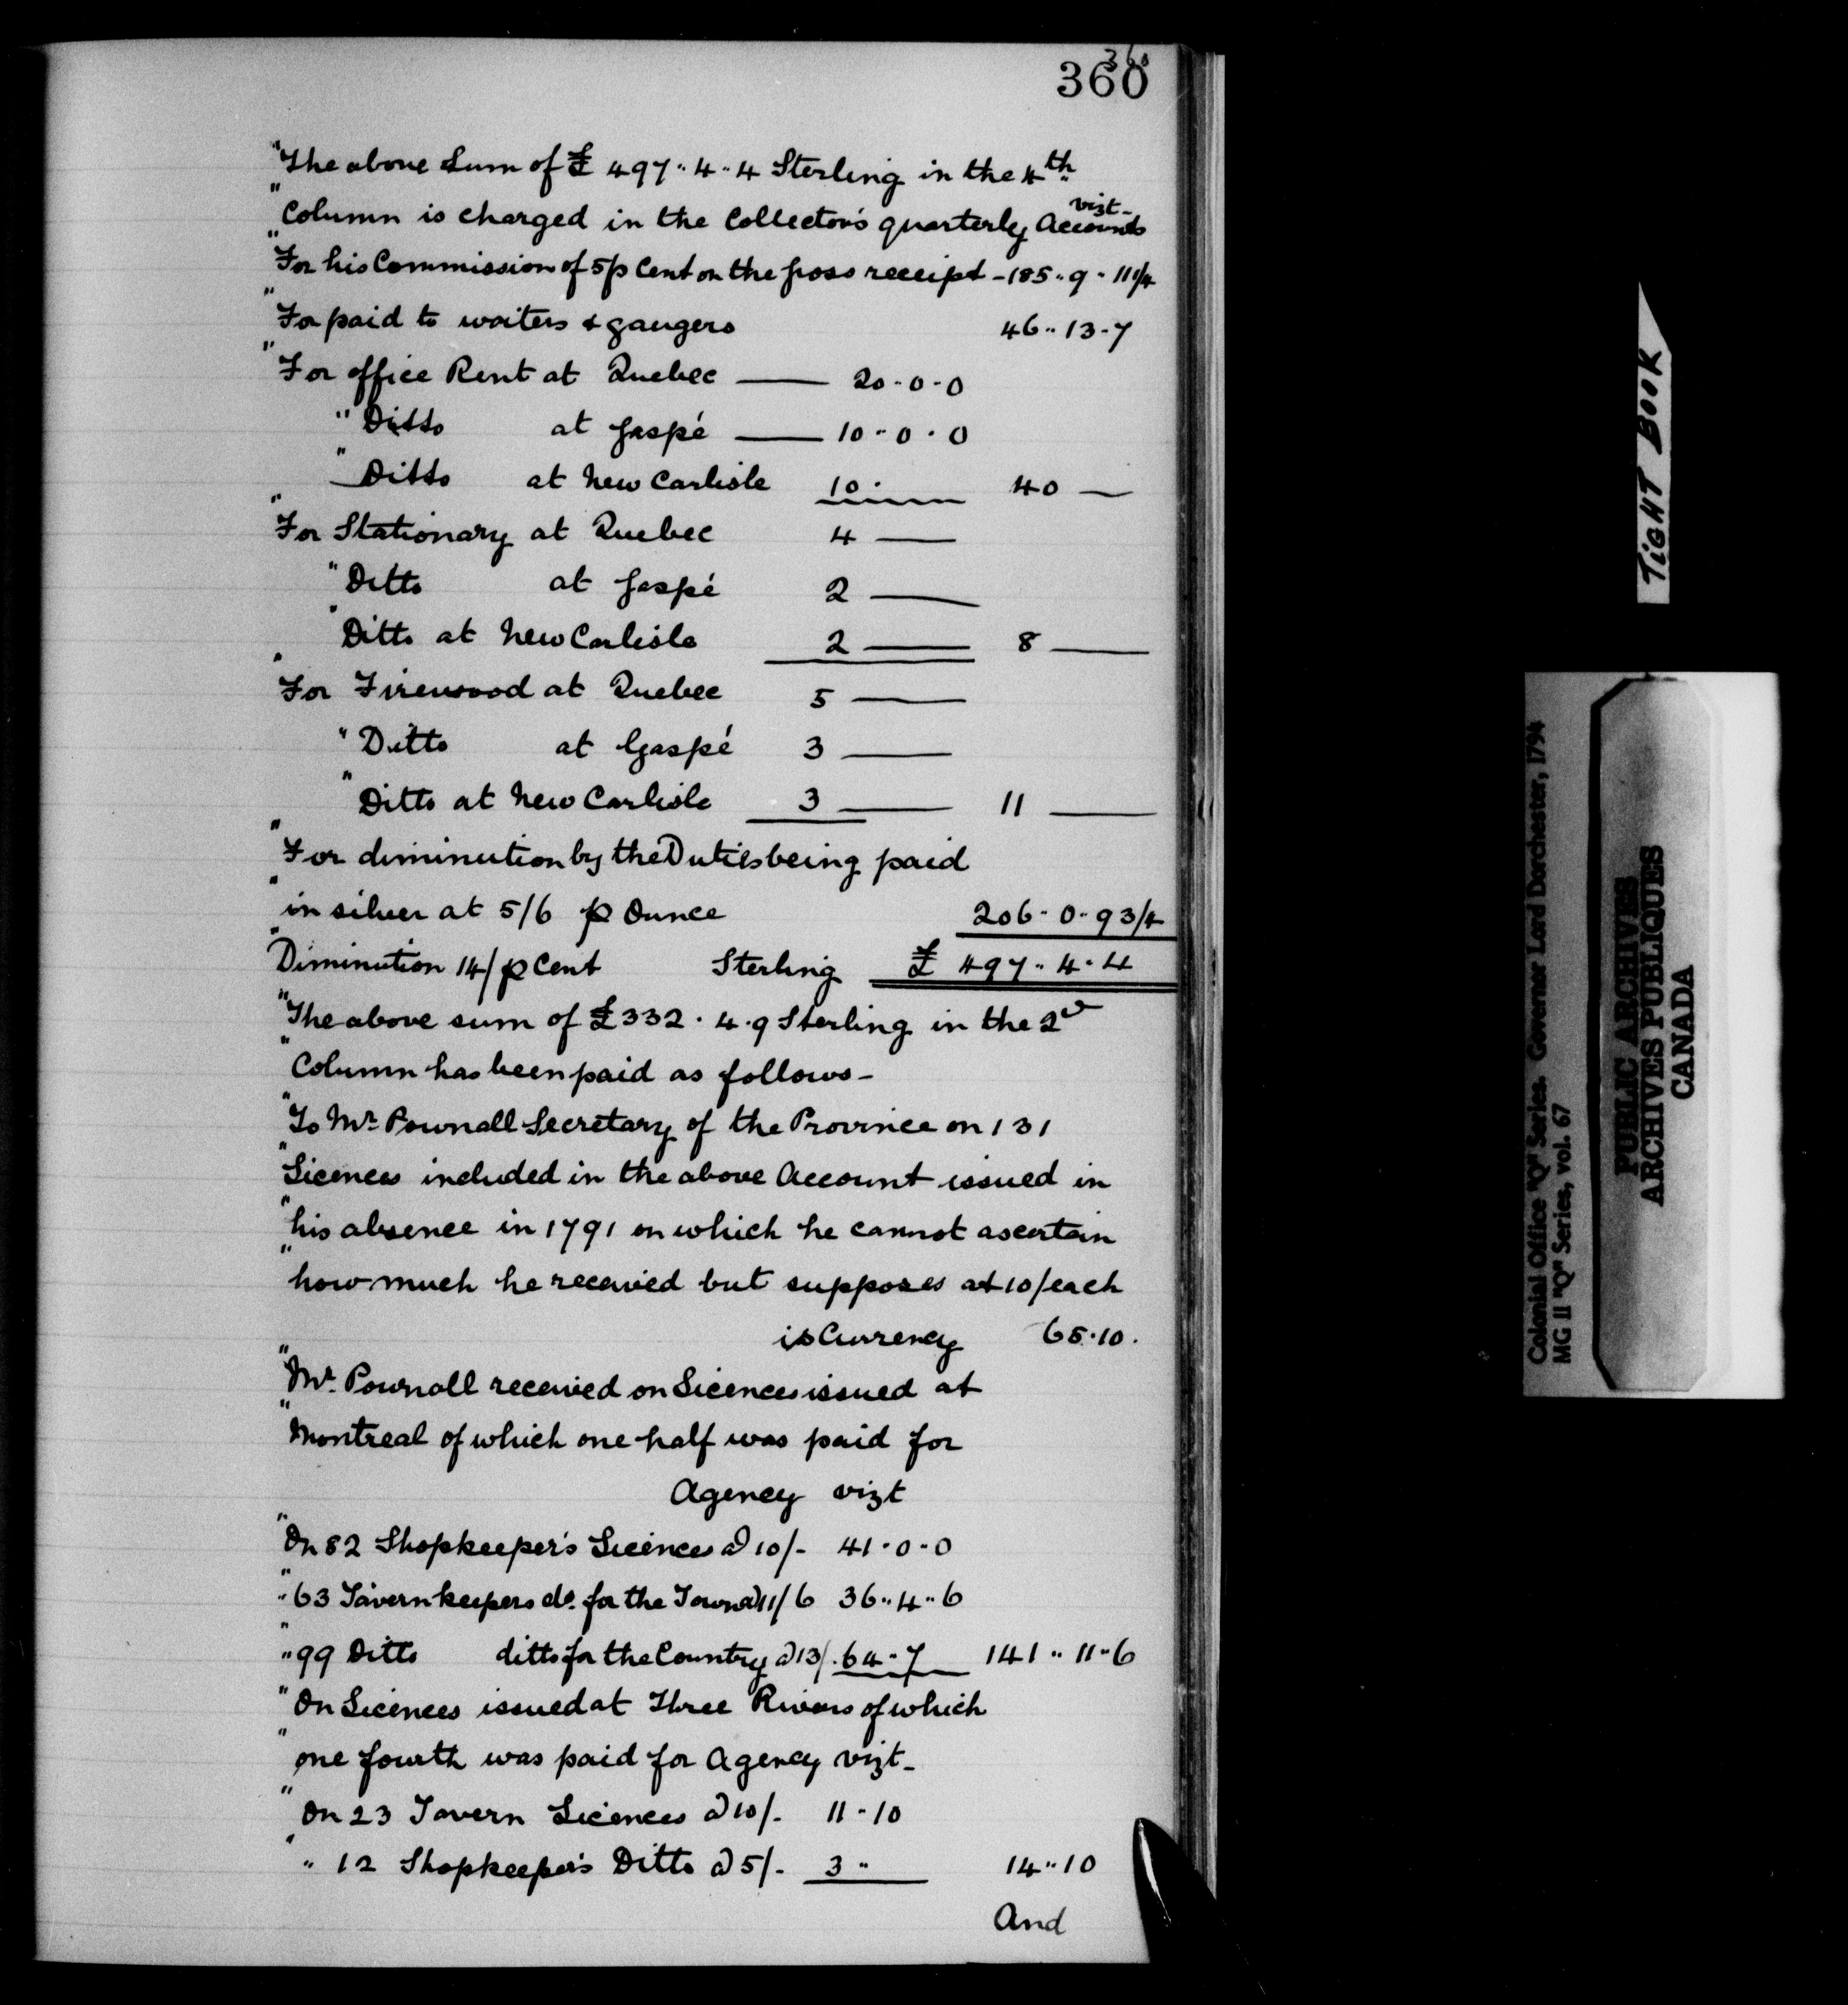 360
360
"The above Sum of £ 497..4..4 Sterling in the 4th
"Column is charged in the Collector's quarterly Accounts vizt-
"For his Commission of 5 p Cent on the gross receipt - 185..9..11 1/4
"For paid to waiters & gaugers 46..13-7
"For office Rent at Quebec —— 20-0-0
"Ditto at Gaspé —— 10-0-0
"Ditto at New Carlisle 10. 40 —
"For Stationary at Quebec 4 —
"Ditto at Gaspé 2 —
"Ditto at New Carlisle 2 — 8 —
"For Firewood at Quebec 5 —
"Ditto at Gaspé 3 —
"Ditto at New Carlisle 3 — 11 —
"For diminution by the Duties being paid
"in silver at 5/6 p Ounce 206-0-9 3/4
"Diminution 14/ p Cent Sterling £ 497..4.4
"The above sum of £332.4.9 Sterling in the 2d
"Column has been paid as follows-
"To Mr. Pownall Secretary of the Province on 131
"Licences included in the above Account issued in
"his absence in 1791 on which he cannot ascertain
"how much he received but supposes at 10/ each
is Currency 65.10.
"Mr. Pownall received on Licences issued at
"Montreal of which one half was paid for
Agency vizt
"On 82 Shopkeeper's Licences a 10/- 41-0-0
"63 Tavernkeepers do. for the Town a 11/6 36..4..6
"99 Ditto ditto for the Country a 13/. 64-7 141..11-6
"On Licences issued at Three Rivers of which
"one fourth was paid for Agency vizt-
"On 23 Tavern Licences a 10/- 11-10
"12 Shopkeeper's Ditto a 5/- 3.. 14..10
And
TIGHT BOOK
Colonial Office "Q" Series. Governor Lord Dorchester, 1794
MG II "Q" Series, vol. 67
PUBLIC ARCHIVES
ARCHIVES PUBLIQUES
CANADA